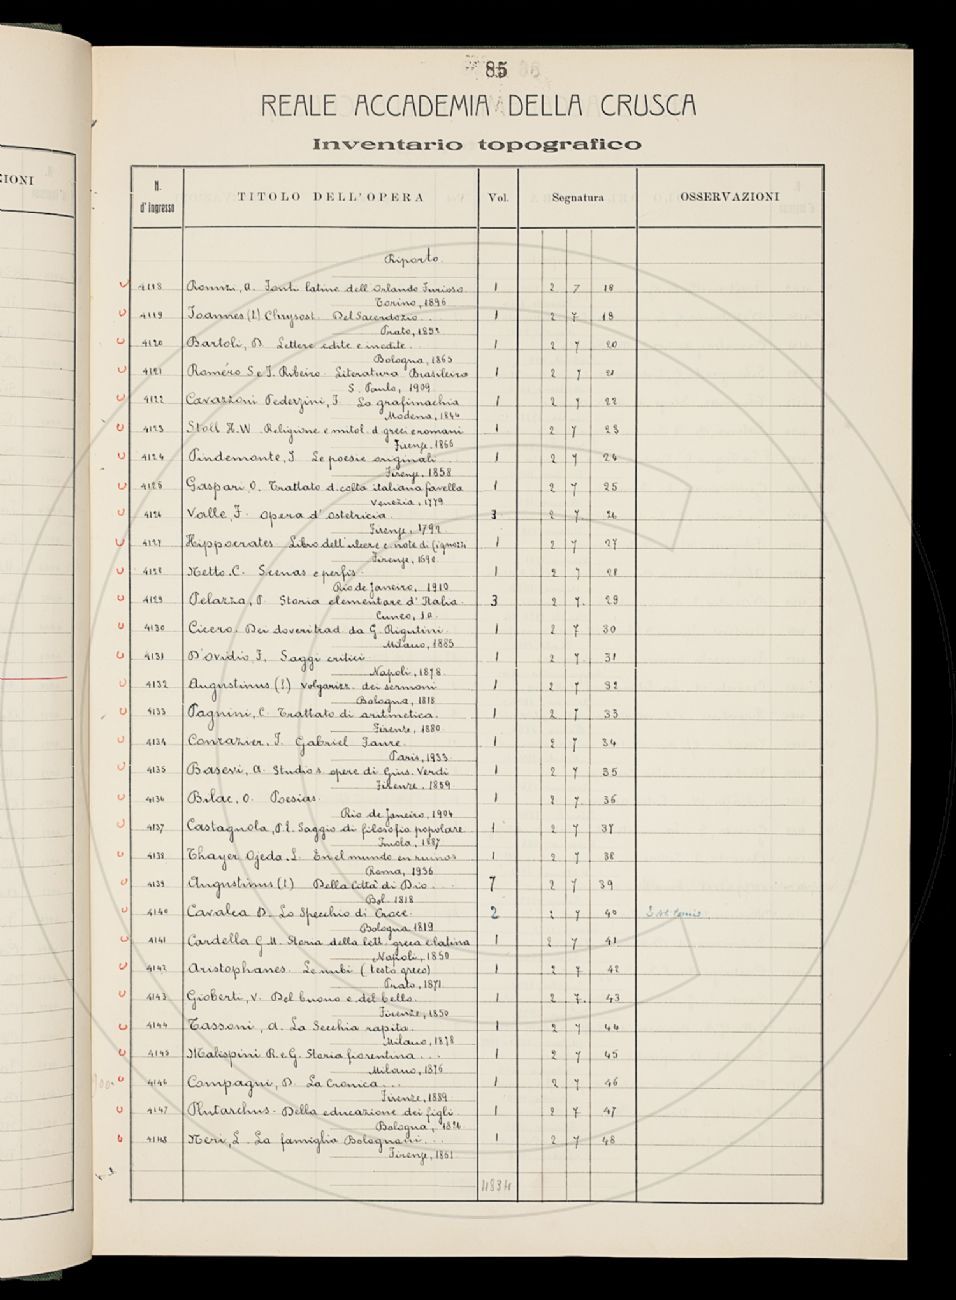 85
REALE ACCADEMIA DELLA CRUSCA
Inventario topografico
IONI
N. d'Ingresso TITOLO DELL'OPERA Vol. Segnatura OSSERVAZIONI
Riporto
4118 Romizi, A. Fonti latine dell'Orlando Furioso 1 2 7 18
Torino, 1896
4119 Ioannes (S.) Chrysost. Del Sacerdozio . . 1 2 7 19
Prato, 1892
4120 Bartoli, D. Lettere edite e inedite . . 1 2 7 20
Bologna, 1865
4121 Roméro S. e J. Ribeiro. Literatura Brasileira 1 2 7 21
S. Paulo, 1909
4122 Cavazzoni Pederzini, F. La grafimachia 1 2 7 22
Modena, 1844
4123 Stoll H.W. Religione e mitol. d. greci e romani 1 2 7 23
Firenze, 1866
4124 Pindemonte, I. Le poesie originali 1 2 7 24
Firenze, 1858
4125 Gaspari, O. Trattato d. colta italiana favella 1 2 7 25
Venezia, 1779
4126 Valle, F. Opera d'ostetricia 3 2 7 26
Firenze, 1792
4127 Hippocrates. Libro dell'ulcere e note di Cignozzi 1 2 7 27
Firenze, 1690
4128 Netto, C. Scenas e perfis. 1 2 7 28
Rio de Janeiro, 1910
4129 Pelazza, P. Storia elementare d'Italia. 3 2 7. 29
Cuneo, s.a.
4130 Cicero. Dei doveri trad da G. Rigutini 1 2 7 30
Milano, 1885
4131 D'Ovidio, F. Saggi critici 1 2 7 31
Napoli, 1878
4132 Augustinus (S.) Volgarizz. dei sermoni 1 2 7 32
Bologna, 1818
4133 Pagnini, C. Trattato di aritmetica. 1 2 7 33
Firenze, 1880
4134 Gabriel Faure 1 2 7 34
Paris, 1933
4135 Basevi, A. Studio s. opere di Gius. Verdi 1 2 7 35
Firenze, 1859
4136 Bilac, O. Poesias. 1 2 7. 36
Rio de Janeiro, 1904
4137 Castagnola, P.E. Saggio di filosofia popolare 1 2 7 37
Imola, 1887
4138 Thayer Ojeda, L. En el mundo en ruinas 1 2 7 38
Roma, 1936
4139 Augustinus (S.) Della Città di Dio . . 7 2 7 39
Bol. 1818
4140 Cavalca D. Lo Specchio di Croce. 2 2 7 40
Bologna 1819
4141 Cardella G.M. Storia della lett. greca e latina 1 2 7 41
Napoli, 1850
4142 Aristophanes. Le nubi (testo greco) 1 2 7 42
Prato, 1871
4143 Gioberti, V. Del buono e del bello. 1 2 7. 43
Firenze, 1850
4144 Tassoni, A. La Secchia rapita. 1 2 7 44
Milano, 1878
4145 Malispini R. e G. Storia fiorentina . . . 1 2 7 45
Milano, 1876
4146 Compagni, D. La Cronica . . . 1 2 7 46
Firenze, 1889
4147 Plutarchus. Della educazione dei figli. 1 2 7 47
Bologna, 1826
4148 Neri, L. La famiglia Bolognani . . . 1 2 7 48
Firenze, 1861
4834